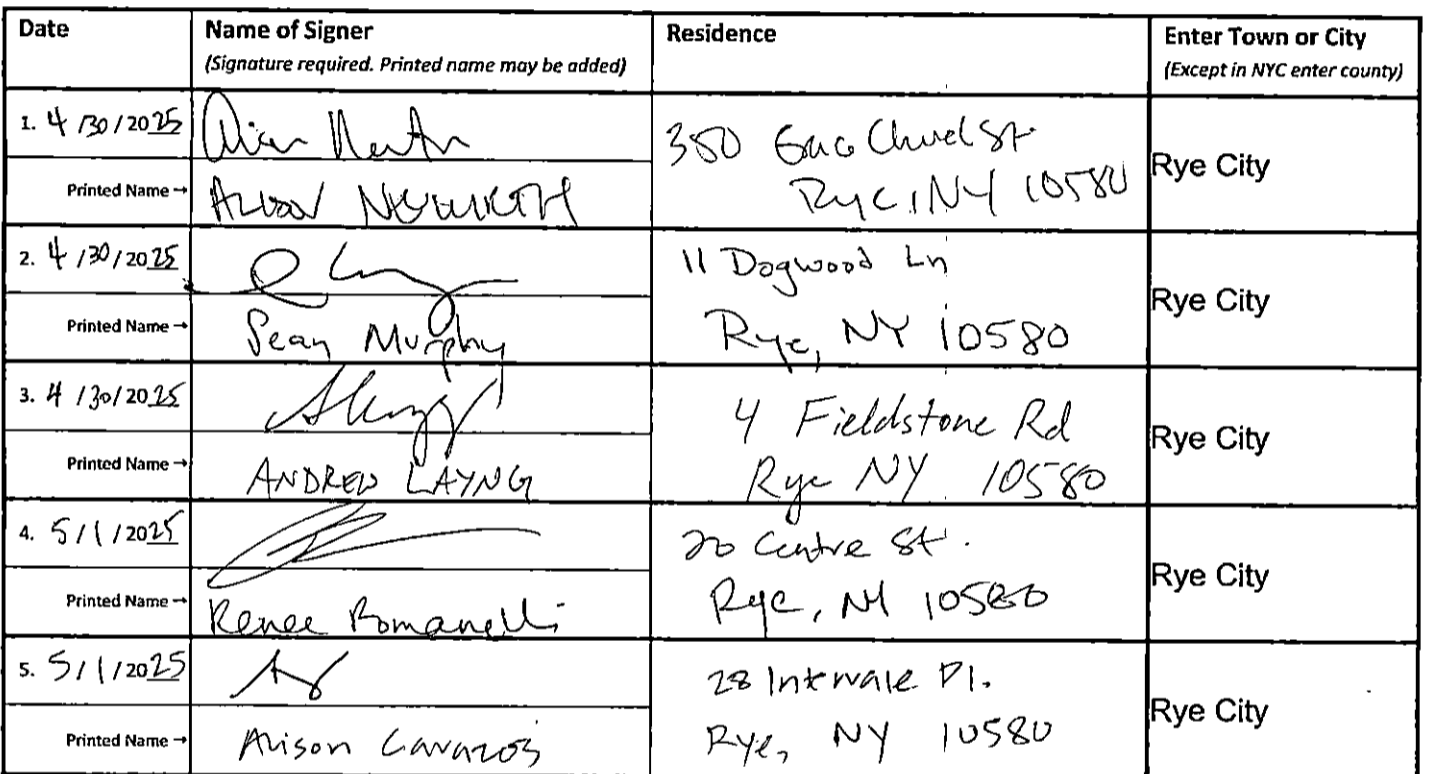 Date
Name of Signer
(Signature required. Printed name may be added)
Residence
Enter Town or City
(Except in NYC enter county)
1. 4/30/2025
350 St.
Rye, NY 10580
Rye City
Printed Name →
2. 4/30/2025
11 Dogwood Ln
Rye, NY 10580
Rye City
Printed Name →
Sean Murphy
3. 4/30/2025
4 Fieldstone Rd
Rye NY 10580
Rye City
Printed Name →
ANDREW LAYNG
4. 5/1/2025
20 Centre St.
Rye, NY 10580
Rye City
Printed Name →
Renee Romanelli
5. 5/1/2025
28 Intervale Pl.
Rye, NY 10580
Rye City
Printed Name →
Alison Cavazos